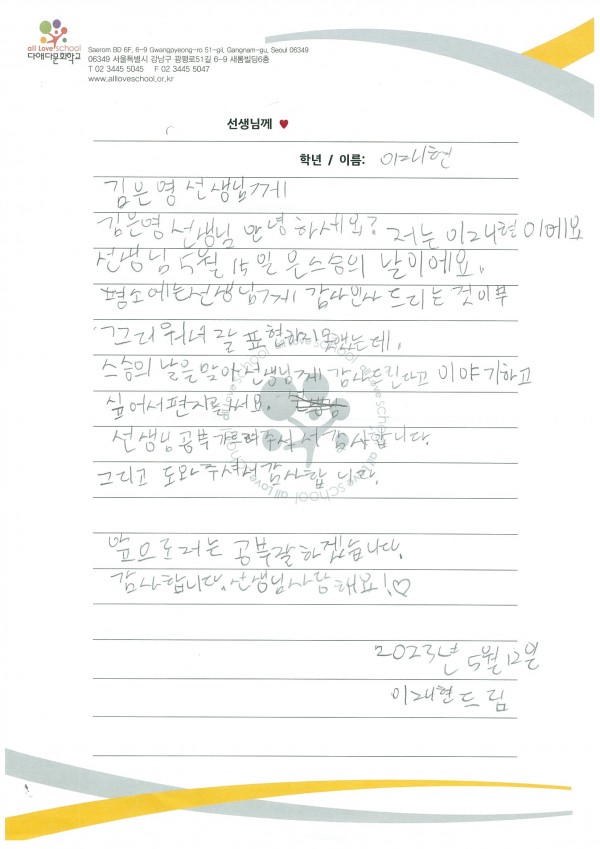 all Love school
다애다문화학교
Saerom BD 6F, 6-9 Gwangpyeong-ro 51-gil, Gangnam-gu, Seoul 06349
06349 서울특별시 강남구 광평로51길 6-9 새롬빌딩6층
T 02 3445 5045 F 02 3445 5047
www.allloveschool.or.kr
선생님께 ♥
학년 / 이름: 이재현
김은영 선생님께
김은영 선생님 안녕하세요? 저는 이재현이에요
선생님 5월 15일은 스승의 날이에요.
평소에는 선생님께 감사인사 드리는 것이 부
끄러워서 잘 표현하지 못했는데,
스승의 날을 맞아 선생님께 감사드린다고 이야기하고
싶어서 편지를 써요.
선생님 공부 가르쳐주셔서 감사합니다.
그리고 도와주셔서 감사합니다.
앞으로 저는 공부 잘 하겠습니다.
감사합니다. 선생님 사랑해요!♡
2023년 5월 12일
이재현 드림
all Love school